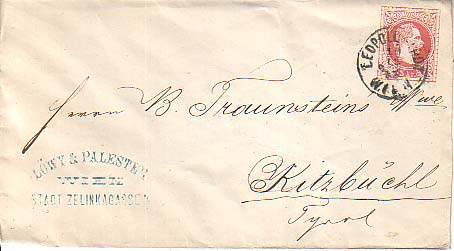 LEOPOLD
WIEN
Herrn B. Traunsteins Wwe.
LÖWY & PALESTER
WIEN
STADT ZELINKAGASSE
Kitzbüchl
Tyrol